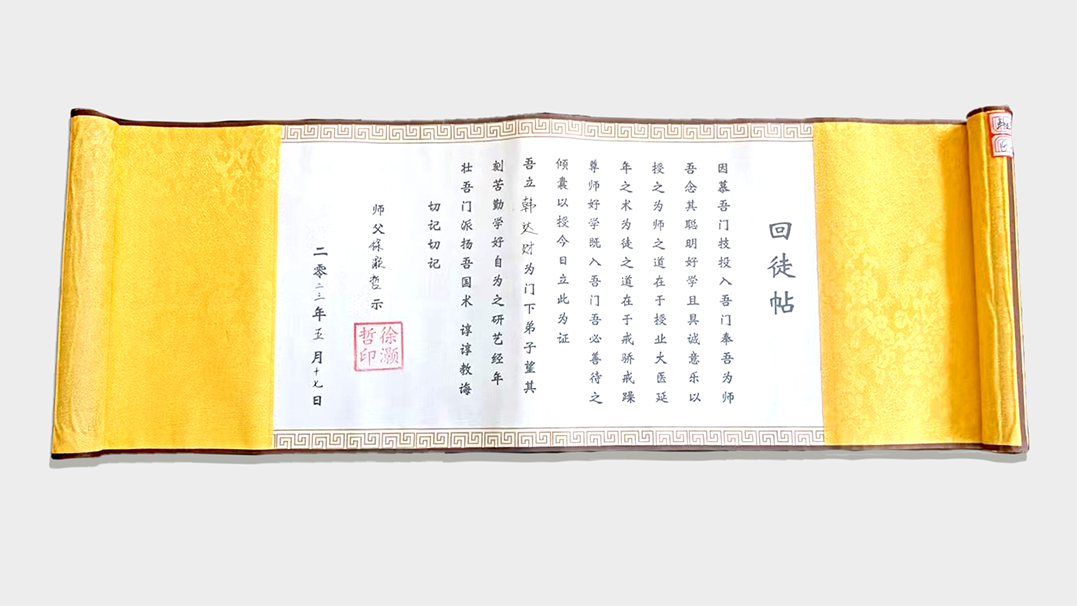 回徒帖
因慕吾门技投入吾门奉吾为师
吾念其聪明好学且具诚意乐以
授之为师之道在于授业大医延
年之术为徒之道在于戒骄戒躁
尊师好学既入吾门吾必善待之
倾囊以授今日立此为证
吾立韩达财为门下弟子望其
刻苦勤学好自为之研艺经年
壮吾门派扬吾国术 谆谆教诲
切记切记
师父徐灏哲示
徐灏哲印
二零二三年五月十七日